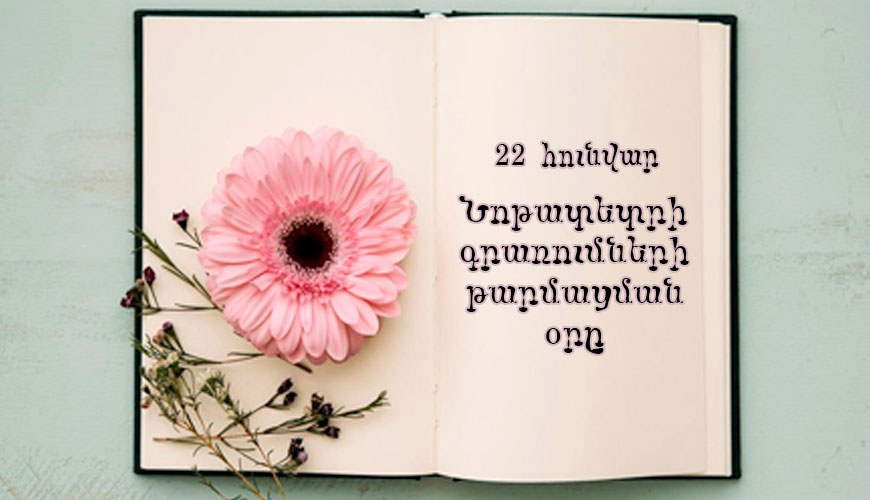 22 հունվար
Նոթատետրի
գրառումների
թարմացման
օրը